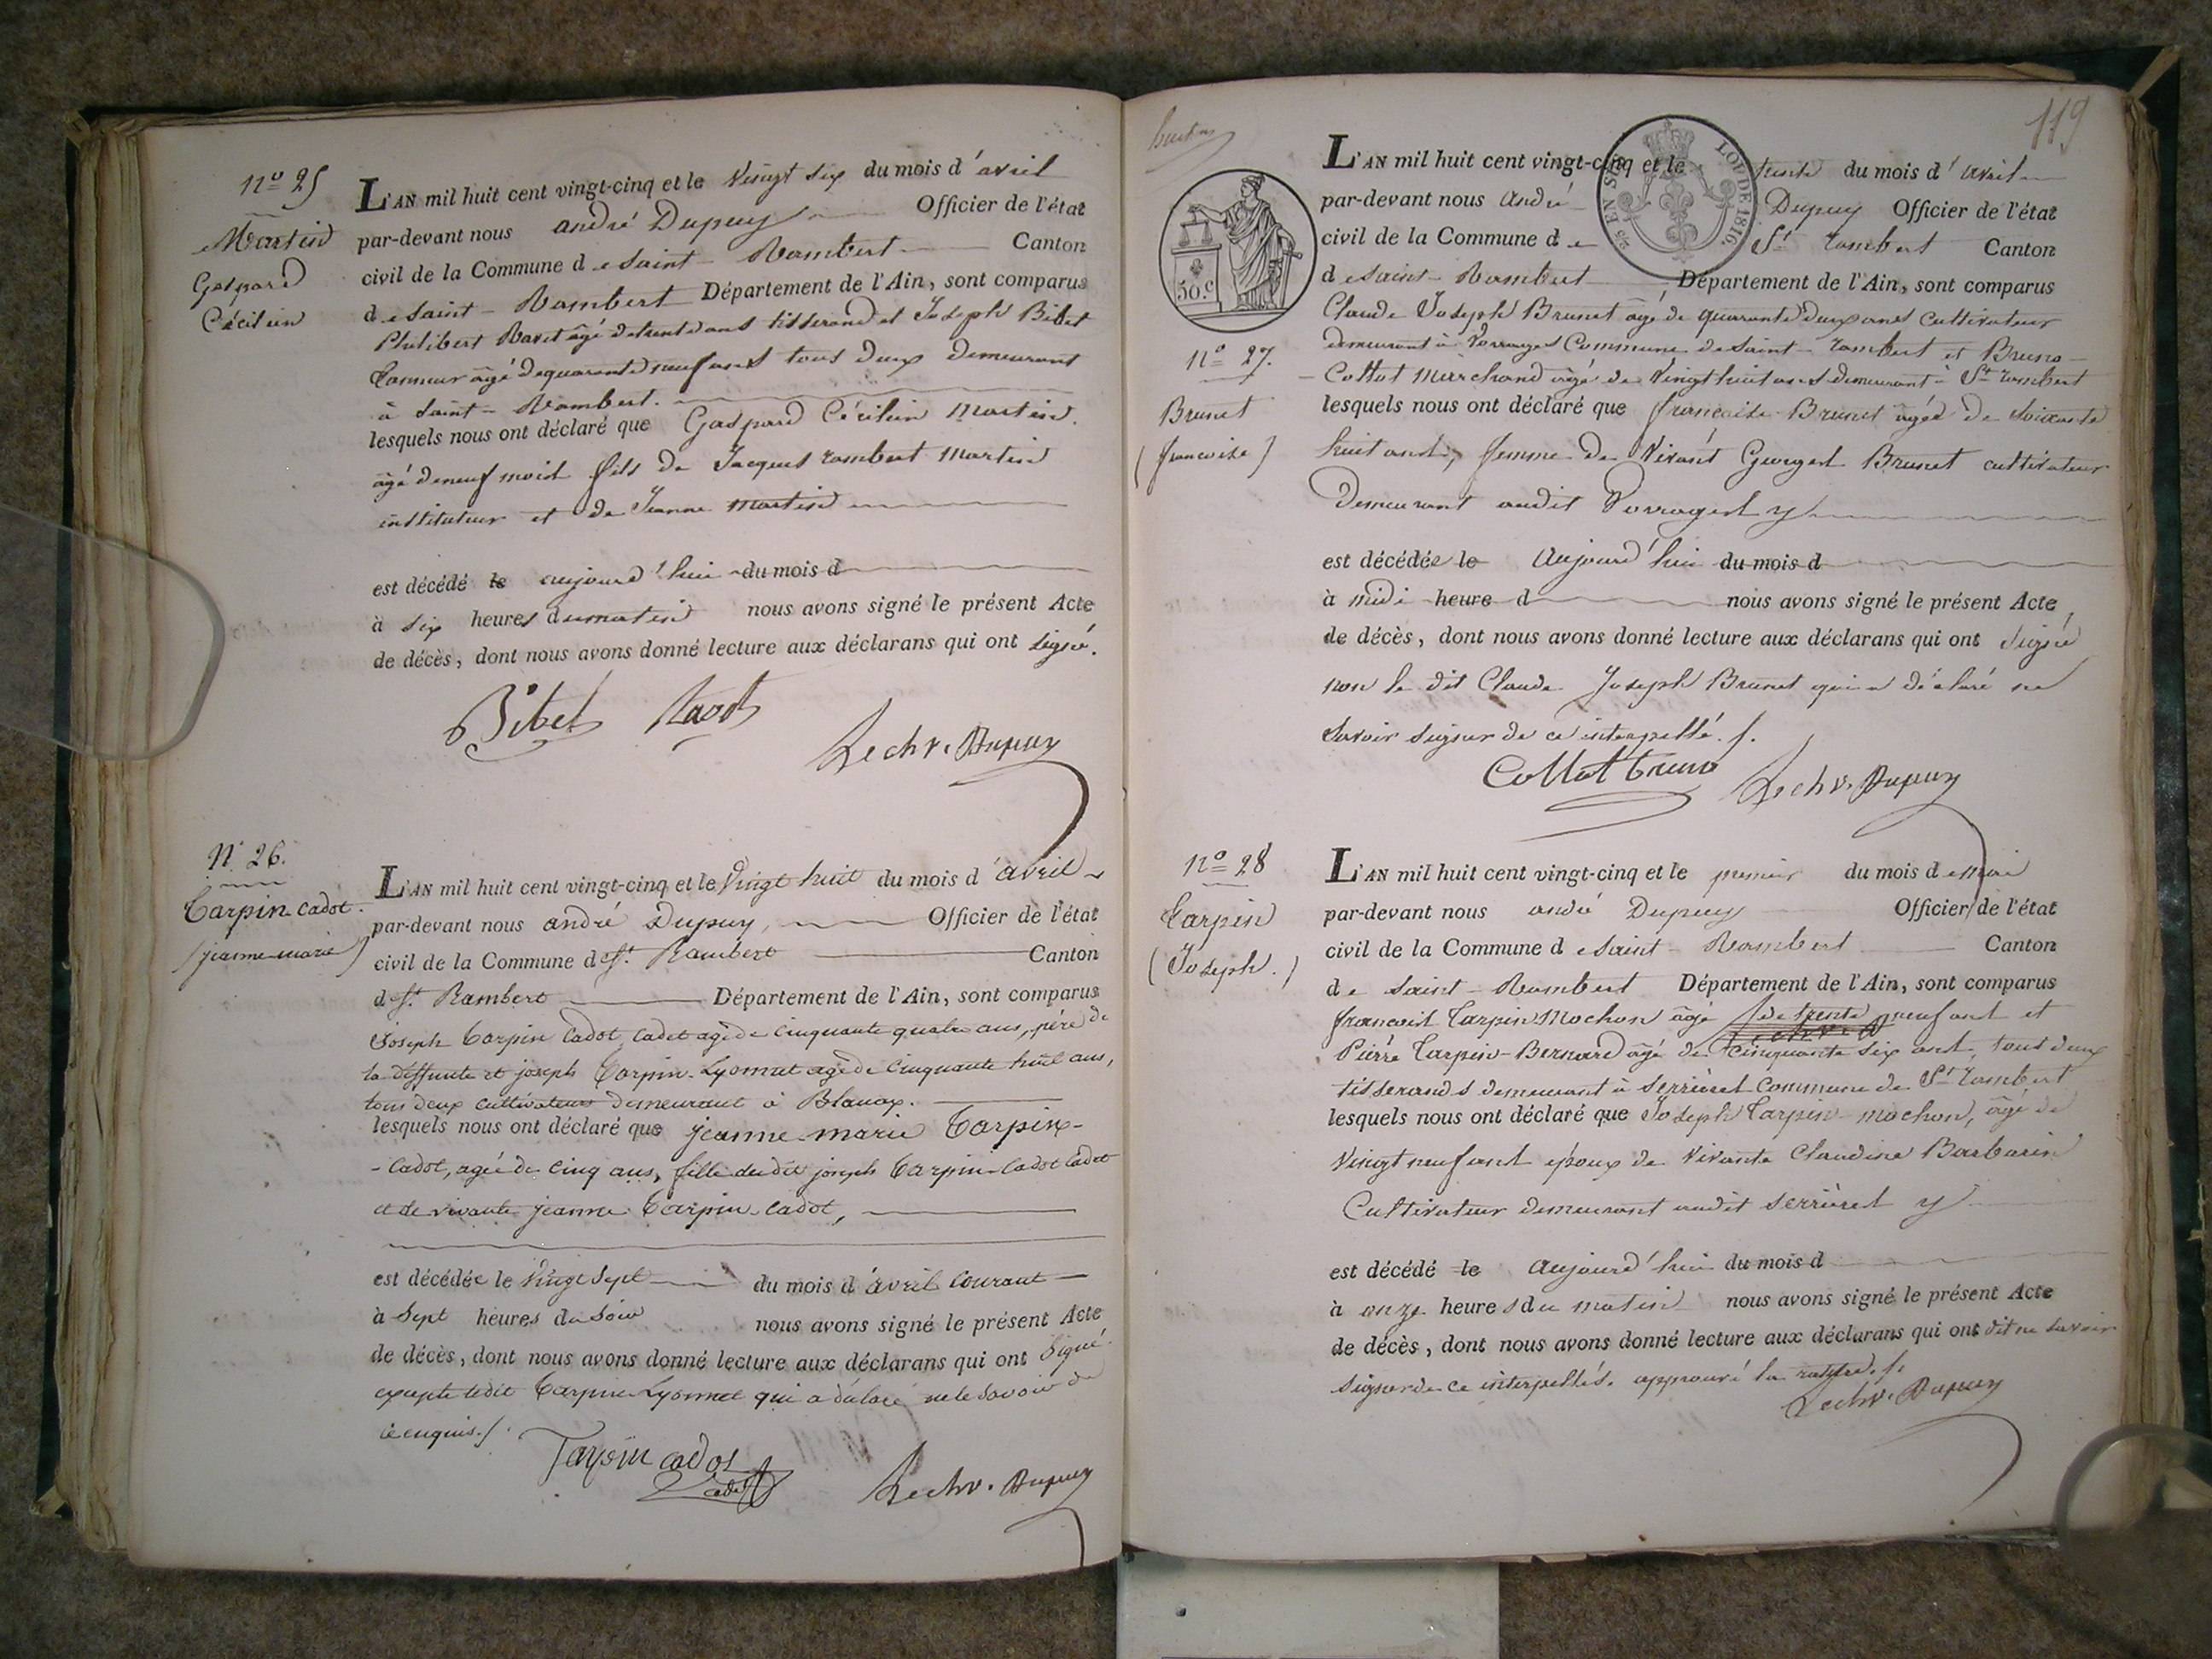 n° 25
Martin
Gaspard
Cécilien
L'AN mil huit cent vingt-cinq et le Vingt six du mois d'avril
par-devant nous andré Dupuy Officier de l'état
civil de la Commune de Saint-Rambert Canton
de Saint-Rambert Département de l'Ain, sont comparus
Philibert Ravet âgé de trente ans tisserand et Joseph Bibet
tanneur âgé de quarante neuf ans tous deux demeurant
à Saint-Rambert.
lesquels nous ont déclaré que Gaspard Cécilien Martin.
âgé de neuf mois fils de Jacques rambert Martin
instituteur et de Jeanne Martin
est décédé le aujourd'hui du mois d
à six heures du matin nous avons signé le présent Acte
de décès, dont nous avons donné lecture aux déclarans qui ont signé.
Bibet Ravet
Le chr. Dupuy
N° 26.
Tarpin-Cadot.
(jeanne-marie)
L'AN mil huit cent vingt-cinq et le Vingt huit du mois d'avril
par-devant nous andré Dupuy, Officier de l'état
civil de la Commune de St. Rambert Canton
de St. Rambert Département de l'Ain, sont comparus
Joseph Tarpin Cadot, Cadet agé de Cinquante quatre ans, père de
la deffunte et joseph Tarpin-Lyonnet agé de Cinquante huit ans,
tous deux cultivateurs demeurant à Blanaz.
lesquels nous ont déclaré que jeanne-marie Tarpin-
-Cadot, agée de cinq ans, fille dudit joseph Tarpin-Cadot Cadet
et de vivante jeanne Tarpin-Cadot,
est décédée le Vingt Sept du mois d'avril courant
à Sept heures du Soir nous avons signé le présent Acte
de décès, dont nous avons donné lecture aux déclarans qui ont Signé
excepté ledit Tarpin-Lyonnet qui a déclaré ne le Savoir de
ce enquis./.
Tarpin cadot
Cadet
Le chr. Dupuy
119
huit
EN SUS
LOI DE 1816.
50.c
n° 27.
Brunet
(françoise)
L'AN mil huit cent vingt-cinq et le trente du mois d'avril
par-devant nous André Dupuy Officier de l'état
civil de la Commune de St rambert Canton
de Saint-Rambert Département de l'Ain, sont comparus
Claude Joseph Brunet âgé de quarante deux ans Cultivateur
demeurant à Vorrages Commune de Saint-rambert et Bruno
Collot Marchand âgé de Vingt huit ans demeurant à St rambert
lesquels nous ont déclaré que françoise Brunet âgée de Soixante
huit ans, femme de Vivant Georges Brunet cultivateur
Demeurant audit Vorrages y
est décédée le Aujourd'hui du mois d
à midi heure d nous avons signé le présent Acte
de décès, dont nous avons donné lecture aux déclarans qui ont Signé
non le dit Claude Joseph Brunet qui a déclaré ne
Savoir signer de ce interpellé./.
Collot bruno Le chr. Dupuy
n° 28
Tarpin
(Joseph.)
L'AN mil huit cent vingt-cinq et le premier du mois de mai
par-devant nous andré Dupuy Officier de l'état
civil de la Commune de Saint-Rambert Canton
de Saint-Rambert Département de l'Ain, sont comparus
françois Tarpin Mochon âgé de trente neuf ans et
Pierre Tarpin-Bernard âgé de cinquante six ans, tous deux
tisserands demeurant à Serrières Commune de St rambert
lesquels nous ont déclaré que Joseph Tarpin-mochon, âgé de
Vingt neuf ans époux de Vivante Claudine Barbarin
Cultivateur demeurant audit Serrières y
est décédé le Aujourd'hui du mois d
à onze heures du matin nous avons signé le présent Acte
de décès, dont nous avons donné lecture aux déclarans qui ont dit ne Savoir
signer de ce interpellés. approuvé la rature./.
Le chr. Dupuy